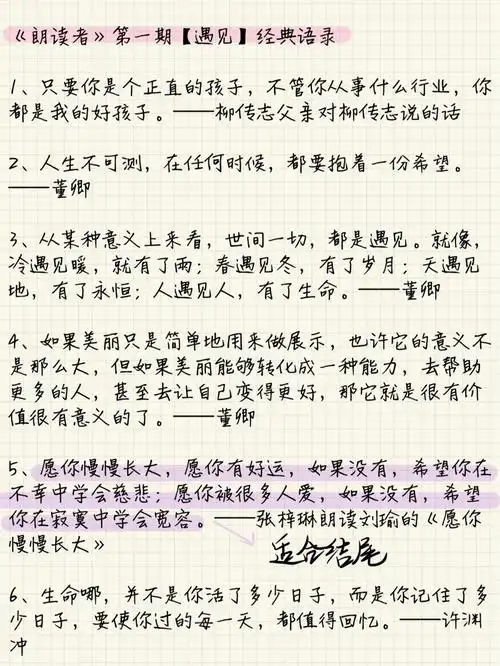 《朗读者》第一期【遇见】经典语录
1、只要你是个正直的孩子，不管你从事什么行业，你
都是我的好孩子。——柳传志父亲对柳传志说的话
2、人生不可测，在任何时候，都要抱着一份希望。
——董卿
3、从某种意义上来看，世间一切，都是遇见。就像，
冷遇见暖，就有了雨；春遇见冬，有了岁月；天遇见
地，有了永恒；人遇见人，有了生命。——董卿
4、如果美丽只是简单地用来做展示，也许它的意义不
是那么大，但如果美丽能够转化成一种能力，去帮助
更多的人，甚至去让自己变得更好，那它就是很有价
值很有意义的了。——董卿
5、愿你慢慢长大，愿你有好运，如果没有，希望你在
不幸中学会慈悲；愿你被很多人爱，如果没有，希望
你在寂寞中学会宽容。——张梓琳朗读刘瑜的《愿你
慢慢长大》
适合结尾
6、生命哪，并不是你活了多少日子，而是你记住了多
少日子，要使你过的每一天，都值得回忆。——许渊
冲